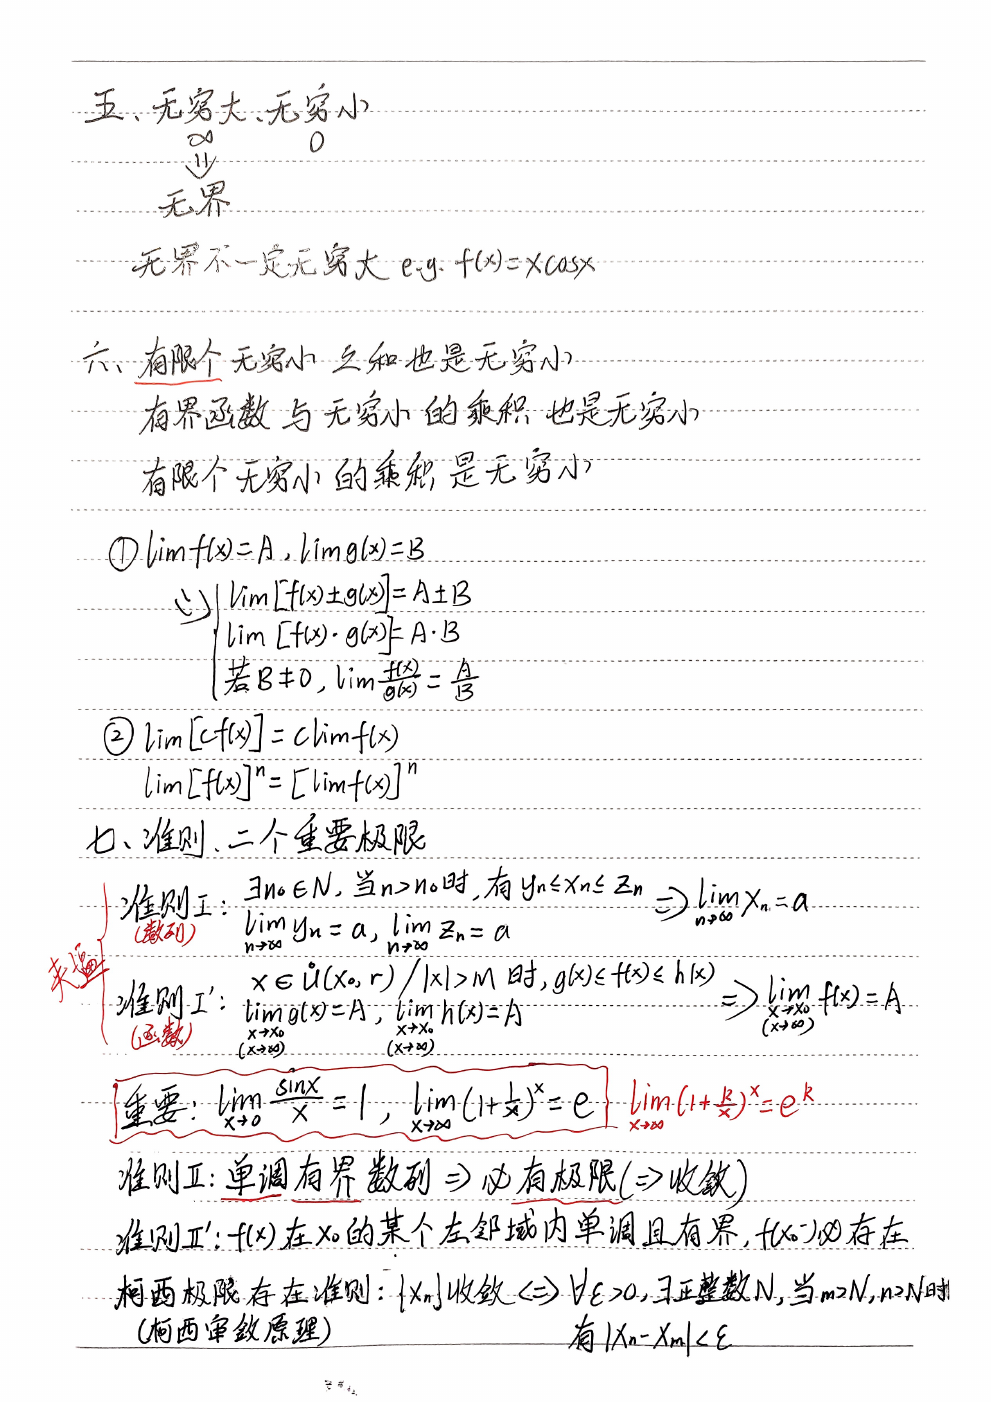 五、无穷大、无穷小
∞ 0
⇓
无界
无界不一定无穷大 e.g. f(x)=xcosx
六、有限个无穷小之和也是无穷小
有界函数与无穷小的乘积也是无穷小
有限个无穷小的乘积是无穷小
① lim f(x)=A, lim g(x)=B
⇒ lim[f(x)±g(x)]=A±B
lim [f(x)·g(x)]=A·B
若B≠0, lim f(x)/g(x) = A/B
② lim[cf(x)]=c lim f(x)
lim[f(x)]ⁿ=[lim f(x)]ⁿ
七、准则、二个重要极限
准则I: ∃n₀∈N, 当n>n₀时, 有 yₙ≤xₙ≤zₙ ⇒ lim n→∞ xₙ=a
(数列) lim n→∞ yₙ=a, lim n→∞ zₙ=a
夹逼
准则I': x∈Ů(x₀,r)/|x|>M时, g(x)≤f(x)≤h(x) ⇒ lim x→x₀ (x→∞) f(x)=A
(函数) lim x→x₀ (x→∞) g(x)=A, lim x→x₀ (x→∞) h(x)=A
重要: lim x→0 sinx/x =1, lim x→∞ (1+1/x)ˣ=e lim x→∞ (1+k/x)ˣ=eᵏ
准则II: 单调有界数列⇒必有极限(⇒收敛)
准则II': f(x)在x₀的某个左邻域内单调且有界, f(x₀⁻)必存在
柯西极限存在准则: {xₙ}收敛<=>∀ε>0, ∃正整数N, 当m>N, n>N时
(柯西审敛原理) 有|xₙ-xₘ|<ε